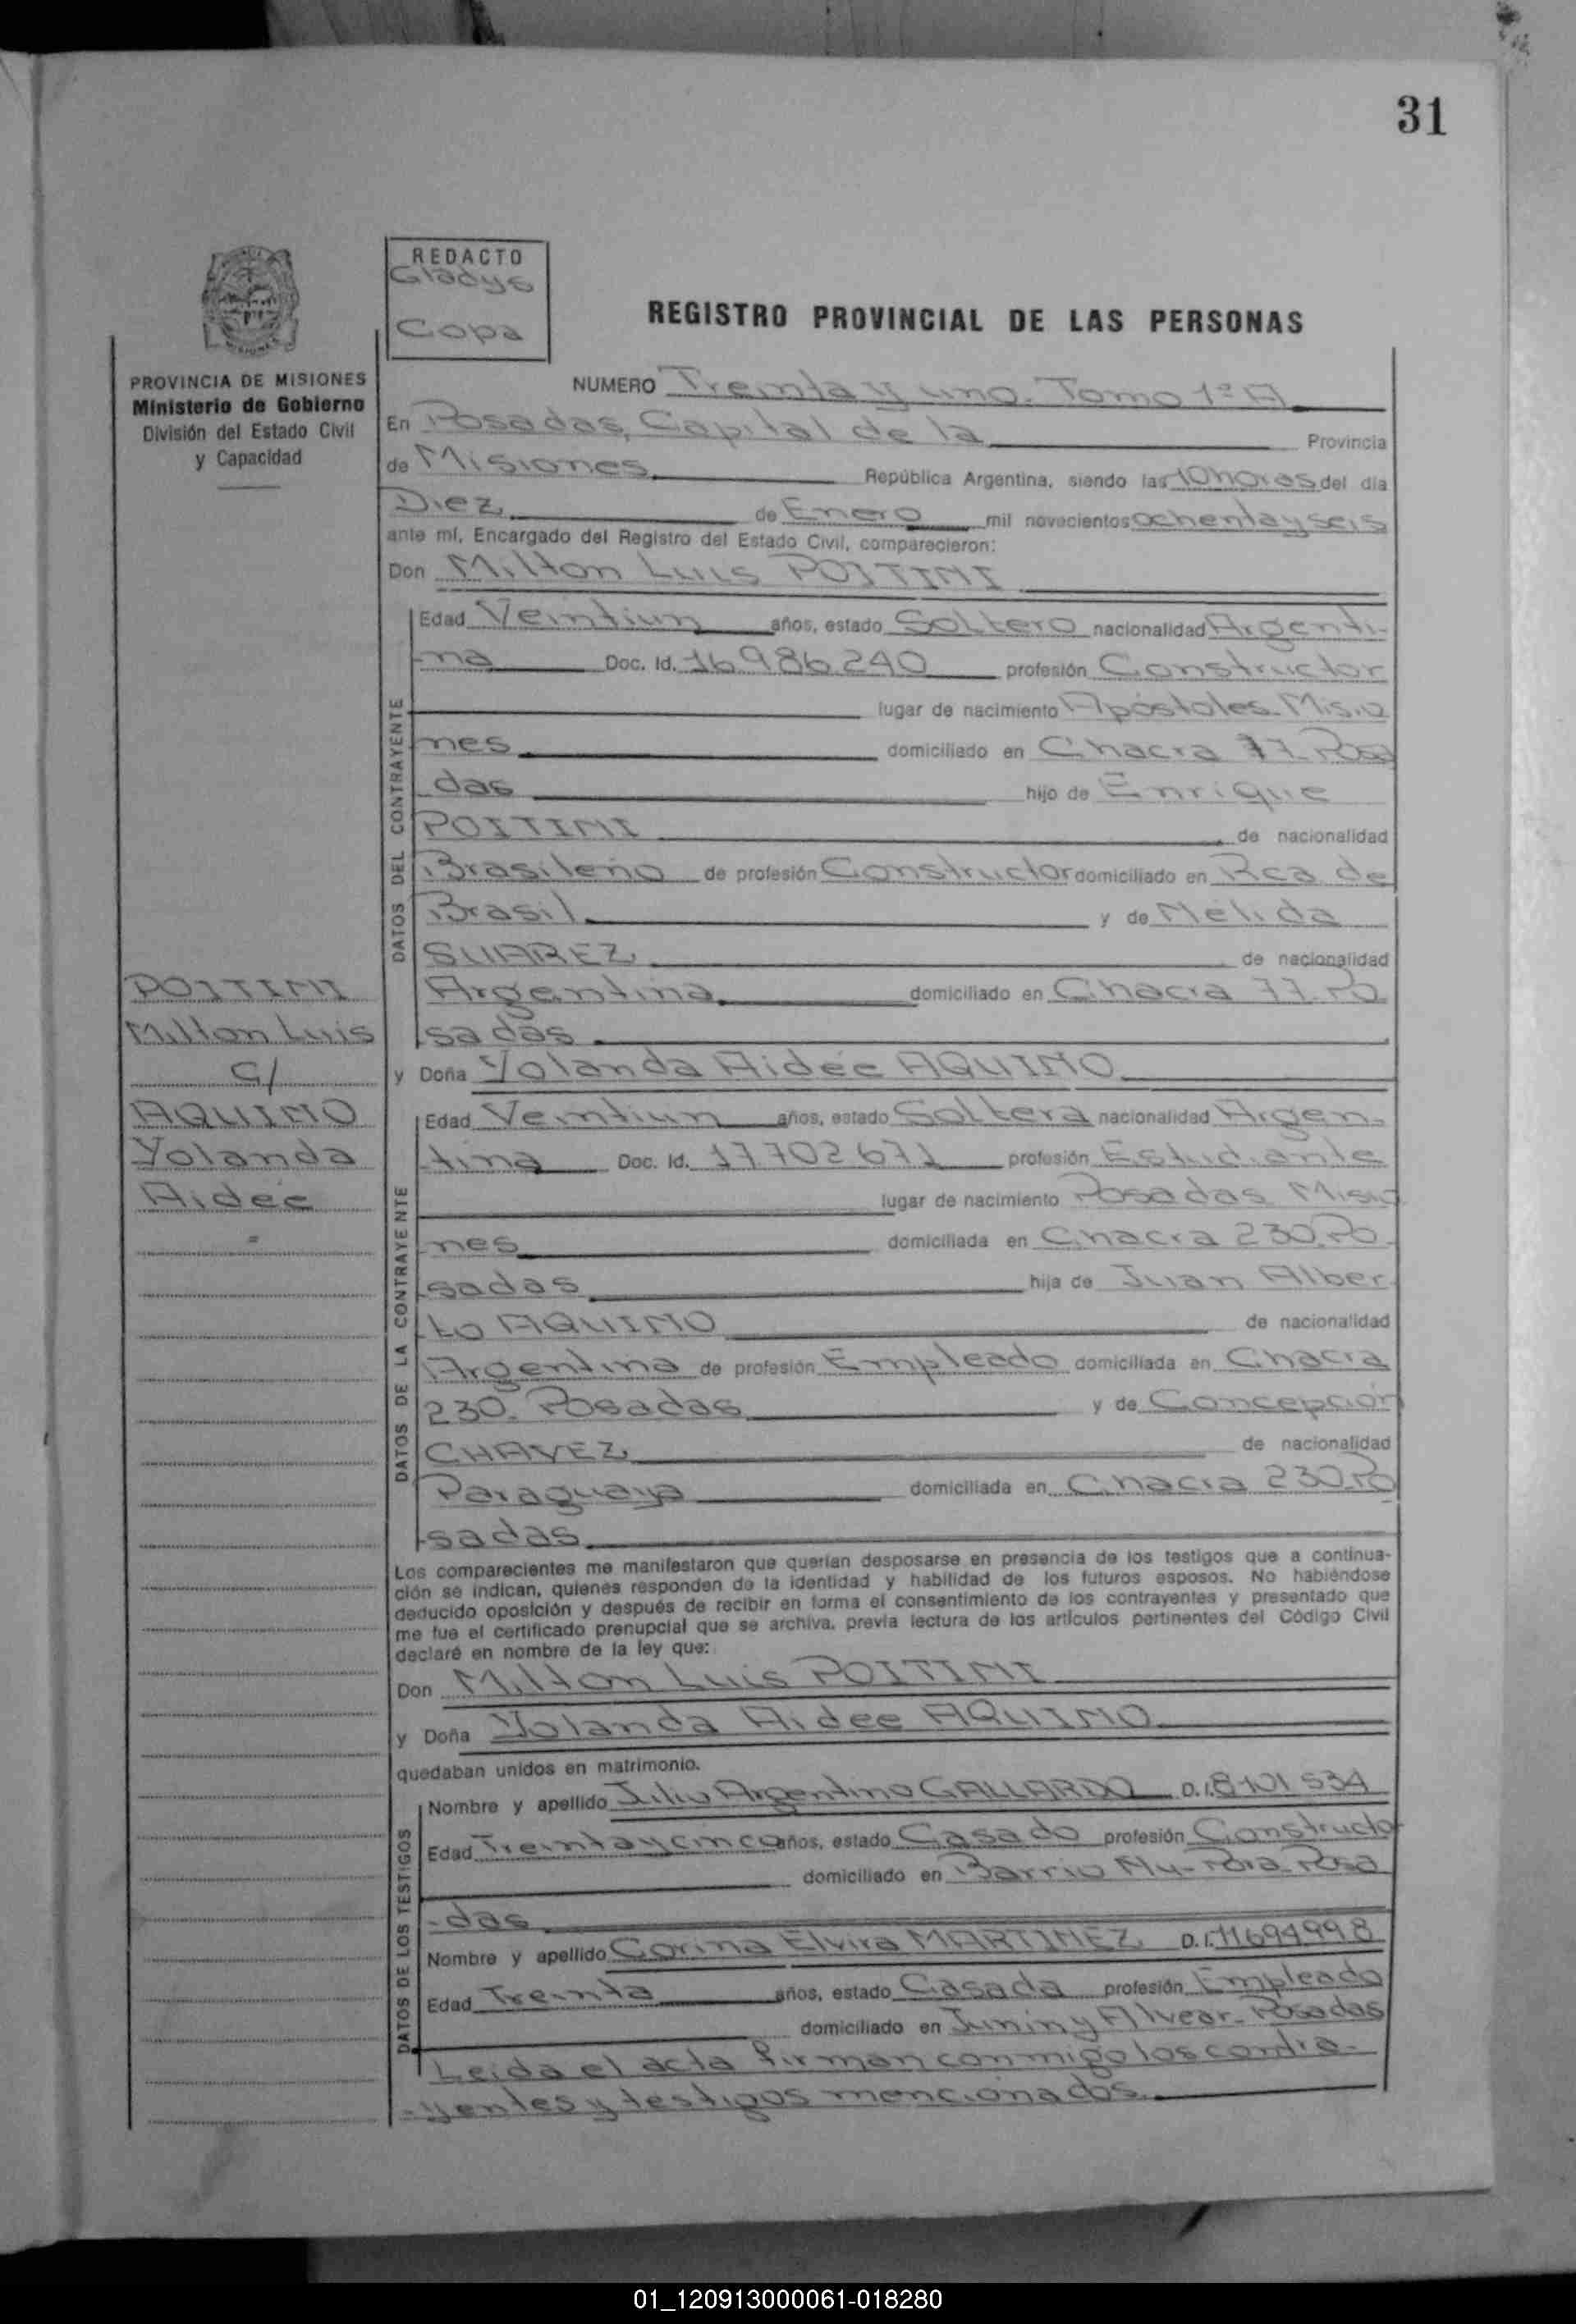 31
REDACTO
Gladys
Copa
REGISTRO PROVINCIAL DE LAS PERSONAS
PROVINCIA DE MISIONES
Ministerio de Gobierno
División del Estado Civil
y Capacidad
NUMERO Treinta y uno. Tomo 1º A
En Posadas, Capital de la Provincia
de Misiones República Argentina, siendo las 10 horas del día
Diez de Enero mil novecientos ochenta y seis
ante mí, Encargado del Registro del Estado Civil, comparecieron:
Don Milton Luis POITINI
DATOS DEL CONTRAYENTE
Edad Veintiun años, estado Soltero nacionalidad Argenti-
na Doc. Id. 16.986.240 profesión Constructor
lugar de nacimiento Apóstoles. Misio
nes domiciliado en Chacra 77. Posa
das hijo de Enrique
POITINI de nacionalidad
Brasileño de profesión Constructor domiciliado en Rca de
Brasil y de Nélida
SUAREZ de nacionalidad
Argentina domiciliado en Chacra 77. Po
sadas
POITINI
Milton Luis
c/
AQUINO
Yolanda
Aideé
y Doña Yolanda Aideé AQUINO
DATOS DE LA CONTRAYENTE
Edad Veintiun años, estado Soltera nacionalidad Argen-
tina Doc. Id. 17.702.671 profesión Estudiante
lugar de nacimiento Posadas Misio
nes domiciliada en Chacra 230. Po-
sadas hija de Juan Alber
to AQUINO de nacionalidad
Argentina de profesión Empleado domiciliada en Chacra
230. Posadas y de Concepción
CHAVEZ de nacionalidad
Paraguaya domiciliada en Chacra 230. Po
sadas
Los comparecientes me manifestaron que querían desposarse en presencia de los testigos que a continua-
ción se indican, quienes responden de la identidad y habilidad de los futuros esposos. No habiéndose
deducido oposición y después de recibir en forma el consentimiento de los contrayentes y presentado que
me fue el certificado prenupcial que se archiva, previa lectura de los artículos pertinentes del Código Civil
declaré en nombre de la ley que:
Don Milton Luis POITINI
y Doña Yolanda Aidee AQUINO
quedaban unidos en matrimonio.
DATOS DE LOS TESTIGOS
Nombre y apellido Julio Argentino GALLARDO D.I. 8101534
Edad Treinta y cinco años, estado Casado profesión Constructo
domiciliado en Barrio Ñu-Porá-Posa
-das
Nombre y apellido Corina Elvira MARTINEZ D.I. 11.694.998
Edad Treinta años, estado Casada profesión Empleado
domiciliado en Junin y Alvear. Posadas
Leida el acta firman conmigo los contra-
-yentes y testigos mencionados.
01_120913000061-018280